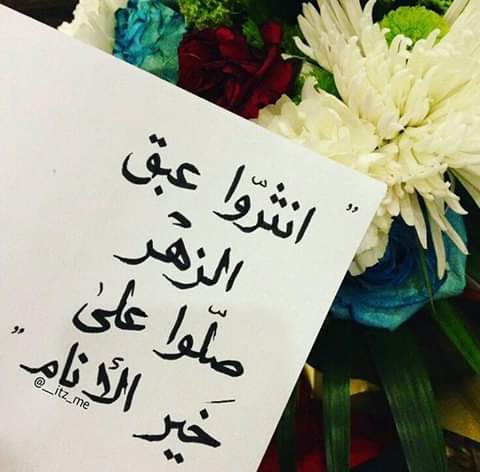 " انثرّوا عبق
الزهْر
صلّوا علىٰ
خَير الأنام "
@__itz_me